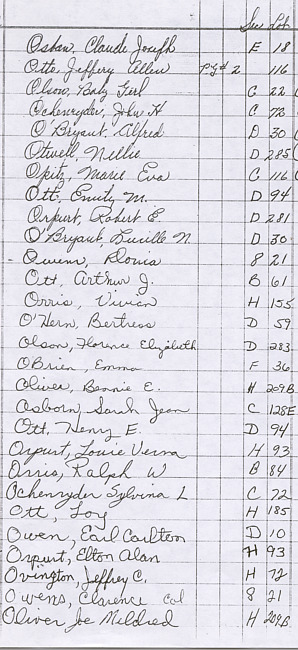 Sec Lot
Osban, Claude Joseph E 18
Otte, Jeffery Allen 2 116
Olson, Baby Girl C 22
Ochenryder, John H C 72
O'Bryant, Alfred D 30
Otwell, Nellie D 285
Opitz, Marie Eva C 116
Ott, Emily M. D 94
Orpurt, Robert E. D 281
O'Bryant, Lucille N. D 30
Owens, 8 21
Ott, Arthur J. B 61
Orris, Vivian H 155
O'Hern, Bertress D 59
Olson, Florence Elizabeth D 283
OBrien, Emma F 36
Oliver, Bennie E. H 209B
Osborn, Sarah Jean C 128E
Ott, Henry E. D 94
Orpurt, Louie Verna H 93
Orris, Ralph W B 84
Ochenryder Sylvina L C 72
Ott, Loy H 185
Owen, Earl Carlton D 10
Orpurt, Elton Alan H 93
Ovington, Jeffrey C. H 72
Owens, Clarence Col 8 21
Oliver Joe Mildred H 209B